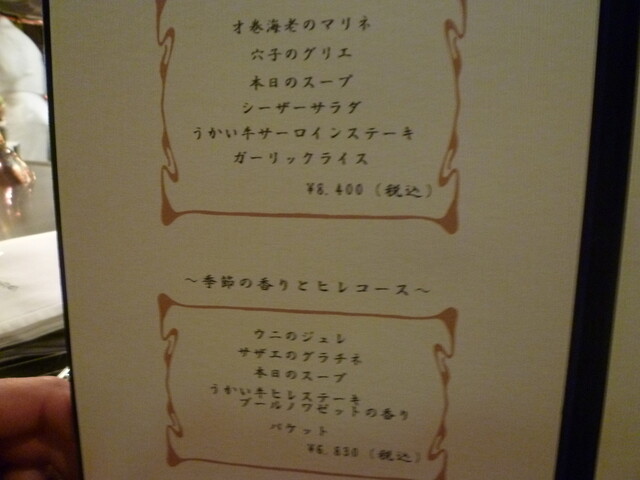 才巻海老のマリネ
穴子のグリエ
本日のスープ
シーザーサラダ
うかい牛サーロインステーキ
ガーリックライス
¥8.400（税込）
～季節の香りとヒレコース～
ウニのジュレ
サザエのグラチネ
本日のスープ
うかい牛ヒレステーキ
ブールノワゼットの香り
バケット
¥6.830（税込）